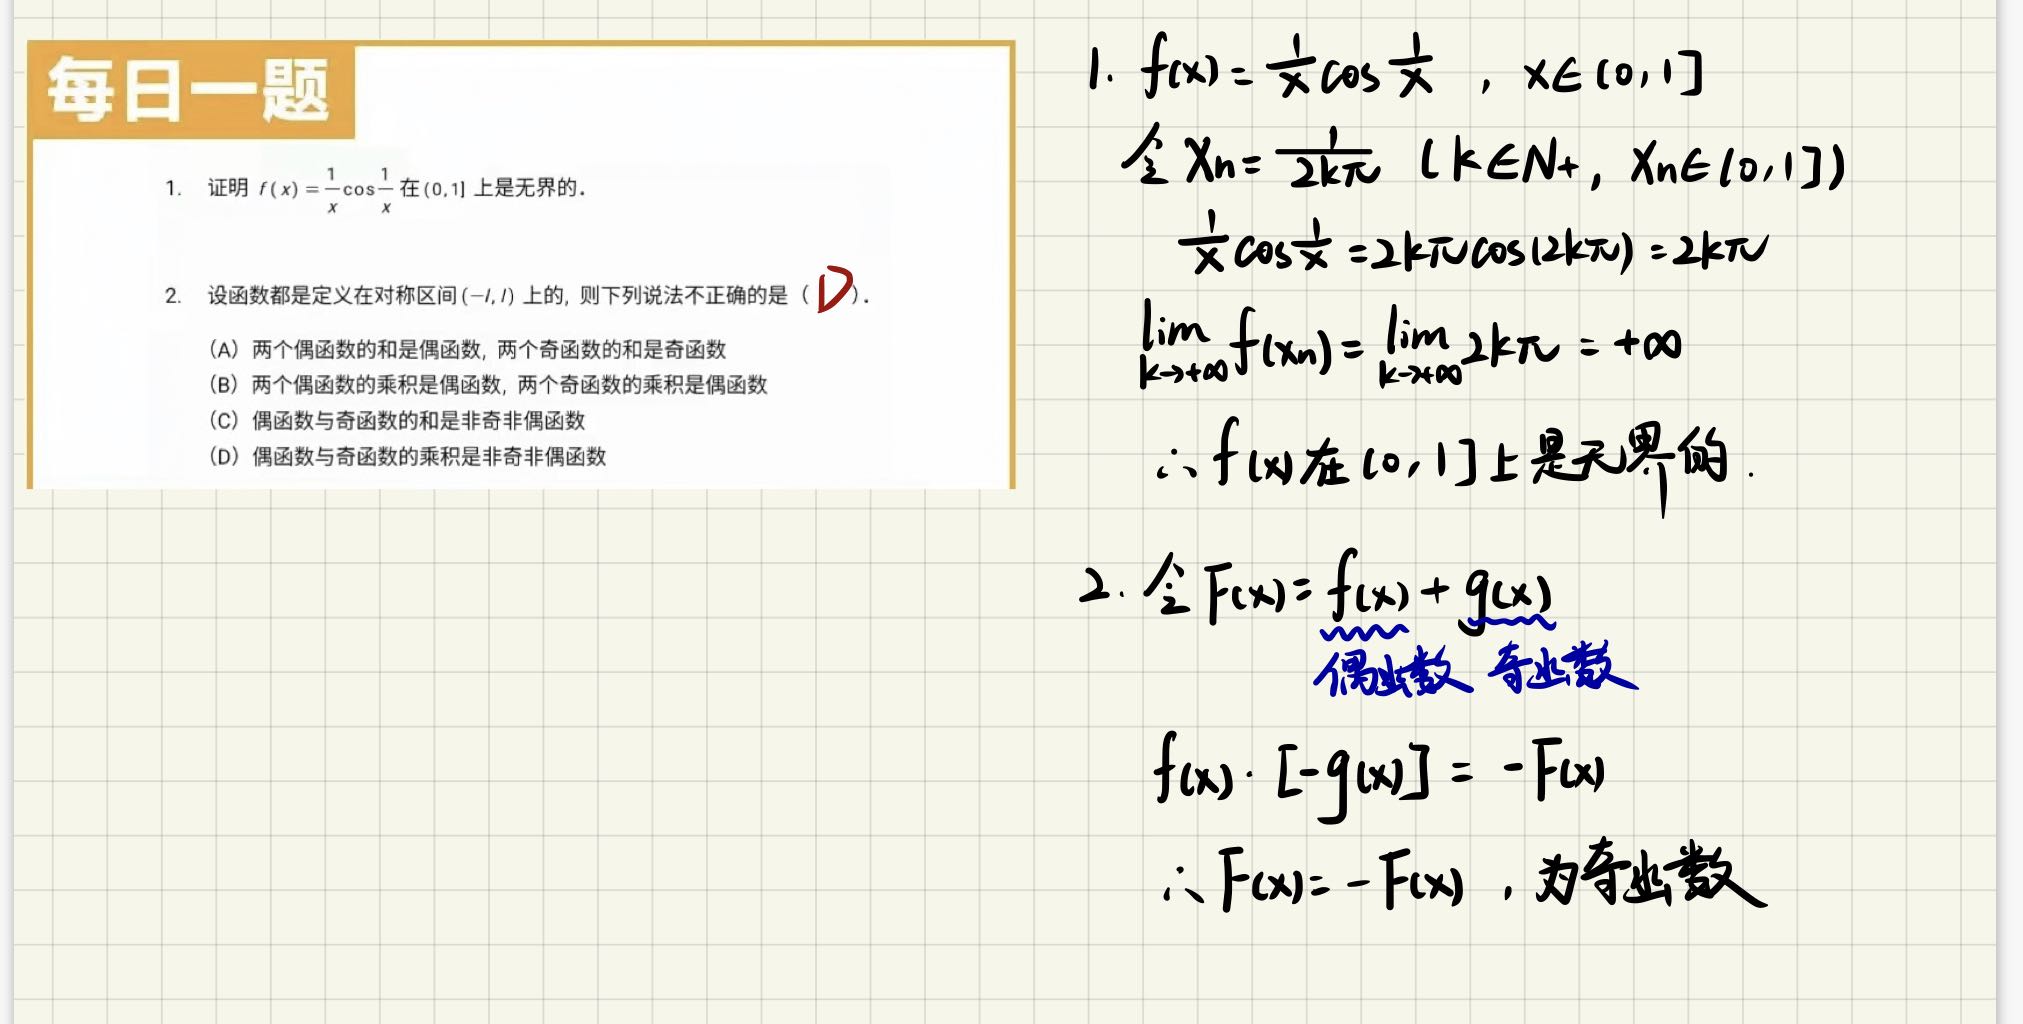 每日一题
1. 证明 f(x) = 1/x cos 1/x 在 (0, 1] 上是无界的.
2. 设函数都是定义在对称区间 (-l, l) 上的, 则下列说法不正确的是 ( D ).
(A) 两个偶函数的和是偶函数, 两个奇函数的和是奇函数
(B) 两个偶函数的乘积是偶函数, 两个奇函数的乘积是偶函数
(C) 偶函数与奇函数的和是非奇非偶函数
(D) 偶函数与奇函数的乘积是非奇非偶函数
1. f(x) = 1/x cos 1/x , x∈(0,1]
令 Xn = 1/2kπ (k∈N+, Xn∈(0,1])
1/x cos 1/x = 2kπcos(2kπ) = 2kπ
lim k→+∞ f(xn) = lim k→+∞ 2kπ = +∞
∴ f(x)在(0,1]上是无界的.
2. 令 F(x) = f(x) + g(x)
偶函数 奇函数
f(x)·[-g(x)] = -F(x)
∴ F(x) = -F(x) , 为奇函数